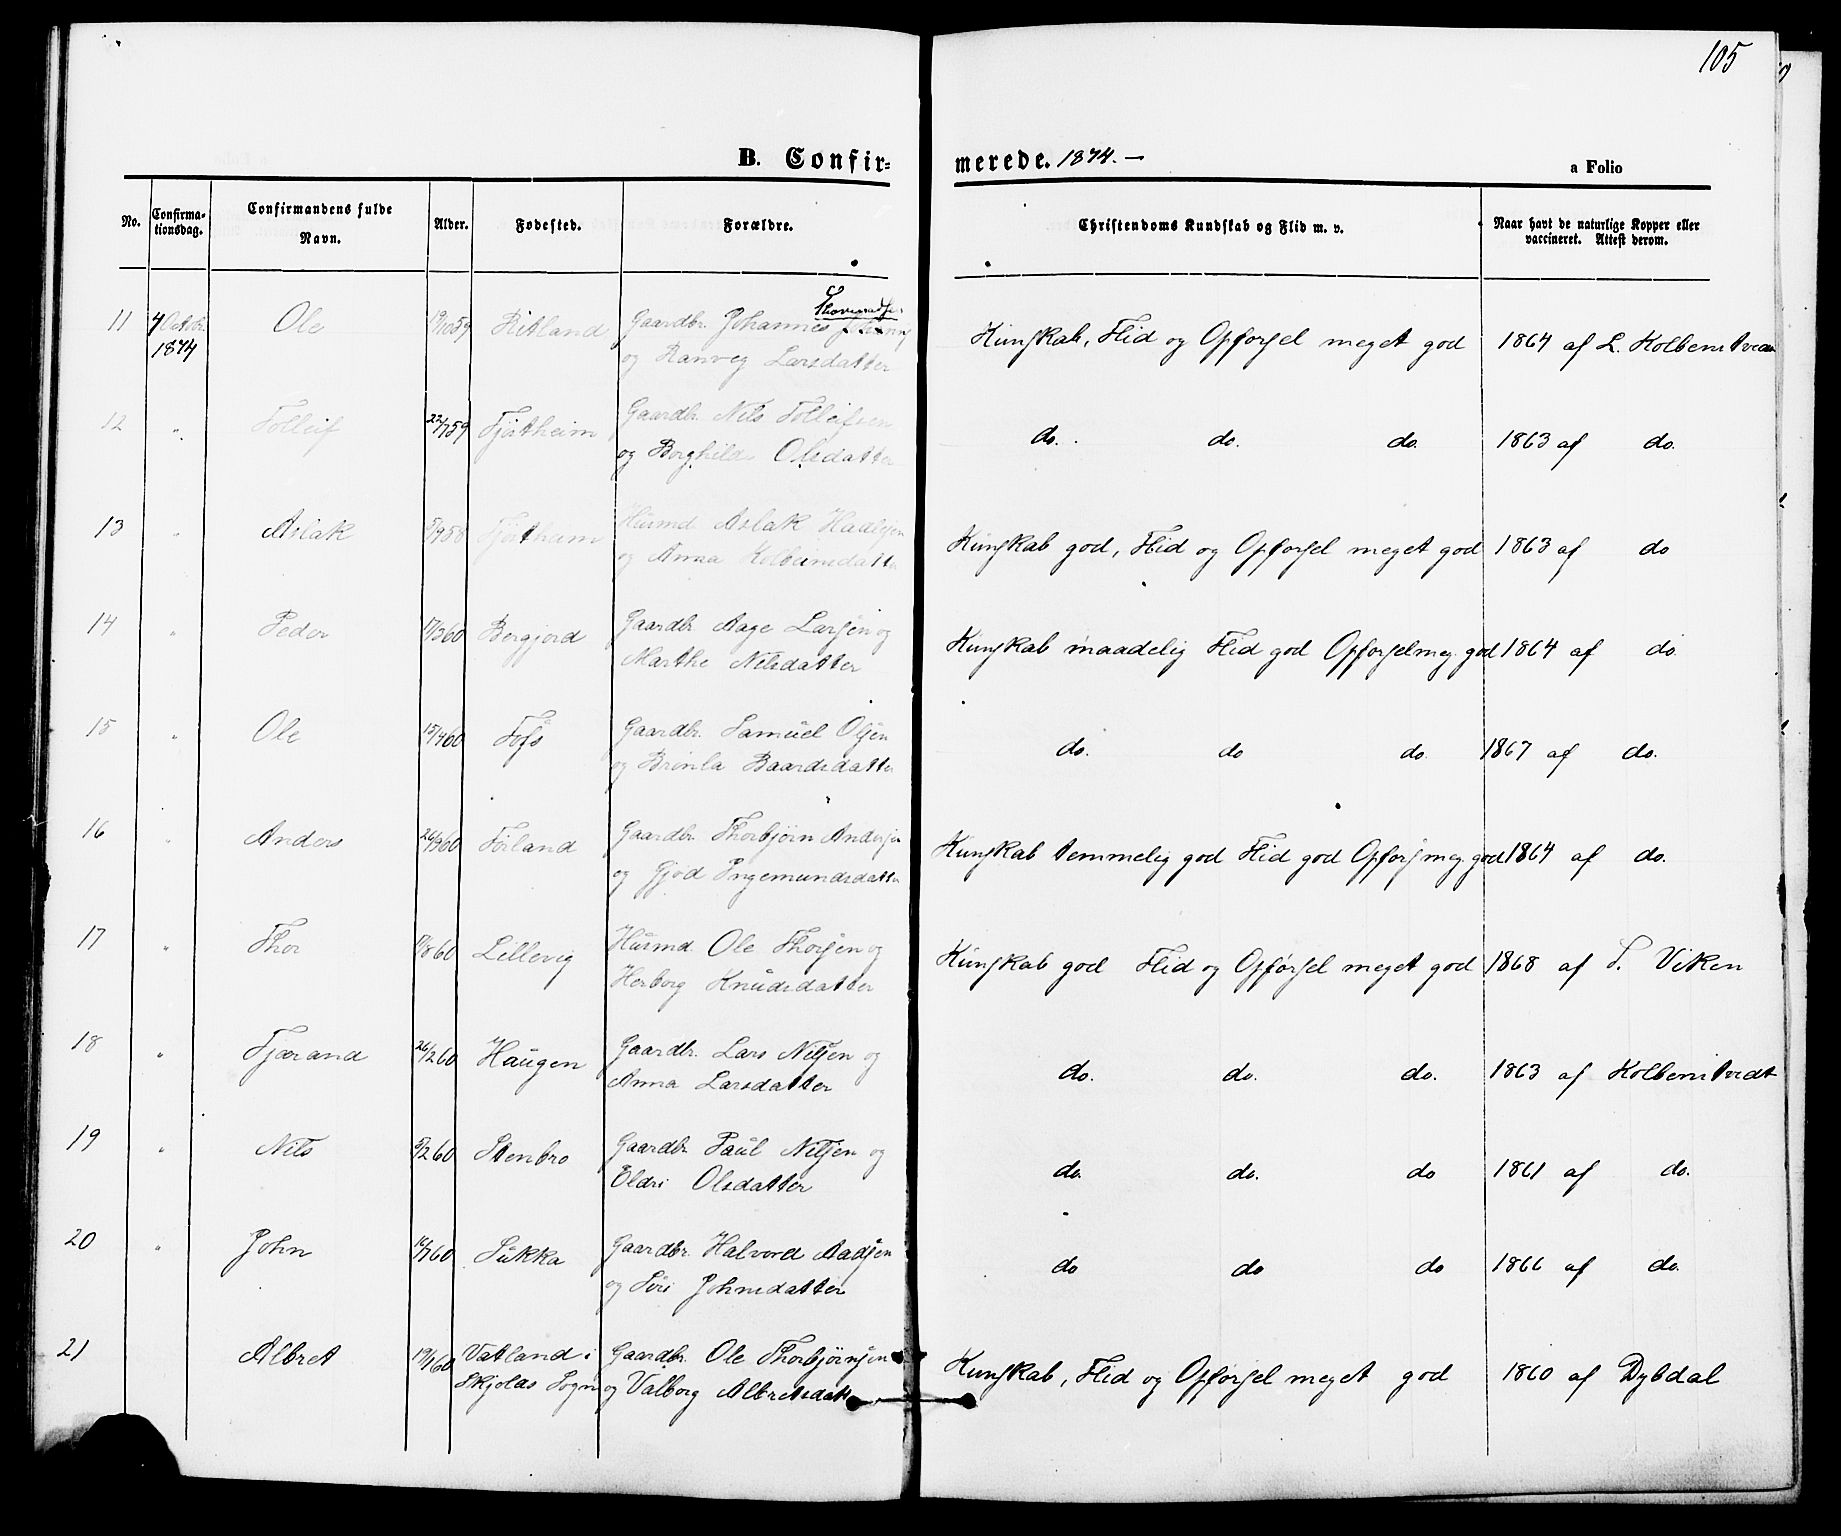 105
B. Confir-
merede. 1874. —
a Folio
No.
Confirma-
tionsdag.
Confirmandens fulde
Navn.
Alder.
Fødested.
Forældre.
Christendoms Kundskab og Flid m. v.
Naar havt de naturlige Kopper eller
vaccineret. Attest derom.
11 4 Octobr. Ole 19/10 59 Ritland Gaardbr. Johannes
1874 og Ranveg Larsdatter
Kunskab, Flid og Opførsel meget god 1864 af L. Kolbenstvedt
12 " Tolleif 22/7 59 Fjortheim Gaardbr. Nils Tolleifsen
og Borghild Olsdatter
do. do. do. 1863 af do.
13 " Aslak 5/9 58 Husmd Aslak
og Anna Kolbeinsdatter
Kunskab god, Flid og Opførsel meget god 1863 af do
14 " Peder 17/3 60 Bergjord Gaardbr Aage Larsen og
Marthe Nilsdatter
Kunskab maadelig Flid god Opførsel meg. god 1864 af do.
15 " Ole 15/4 60 Gaardbr. Samuel Olsen
og Brinla Baardsdatter
do. do do 1867 af do.
16 " Anders 26/3 60 Førland Gaardbr. Thorbjørn Andersen
og Gjød Ingemundsdatter
Kunskab temmelig god Flid god Opførs meg. god 1864 af do.
17 " Thor /8 60 Lillevig Husmd. Ole Thorsen og
Herborg Knudsdatter
Kunskab god Flid og Opførsel meget god 1868 af S. Viken
18 " Tjærand 26/2 60 Haugen Gaardbr. Lars Nilsen og
Anna Larsdatter
do. do. do. 1863 af Kolbenstvedt
19 " Nils /2 60 Stenbro Gaardbr Paul Nilsen og
Eldri Olsdatter
do. do. do 1861 af do.
20 " John /7 60 Sukka Gaardbr. Halvord Aadsen
og Siri Johnsdatter
do do do 1866 af do.
21 Albret 19/1 60 Vatland i Gaardbr. Ole Thorbjørnsen
Skjolds Sogn og Valborg Albretsdatt
Kunskab, Flid og Opførsel meget god 1860 af Dybdal